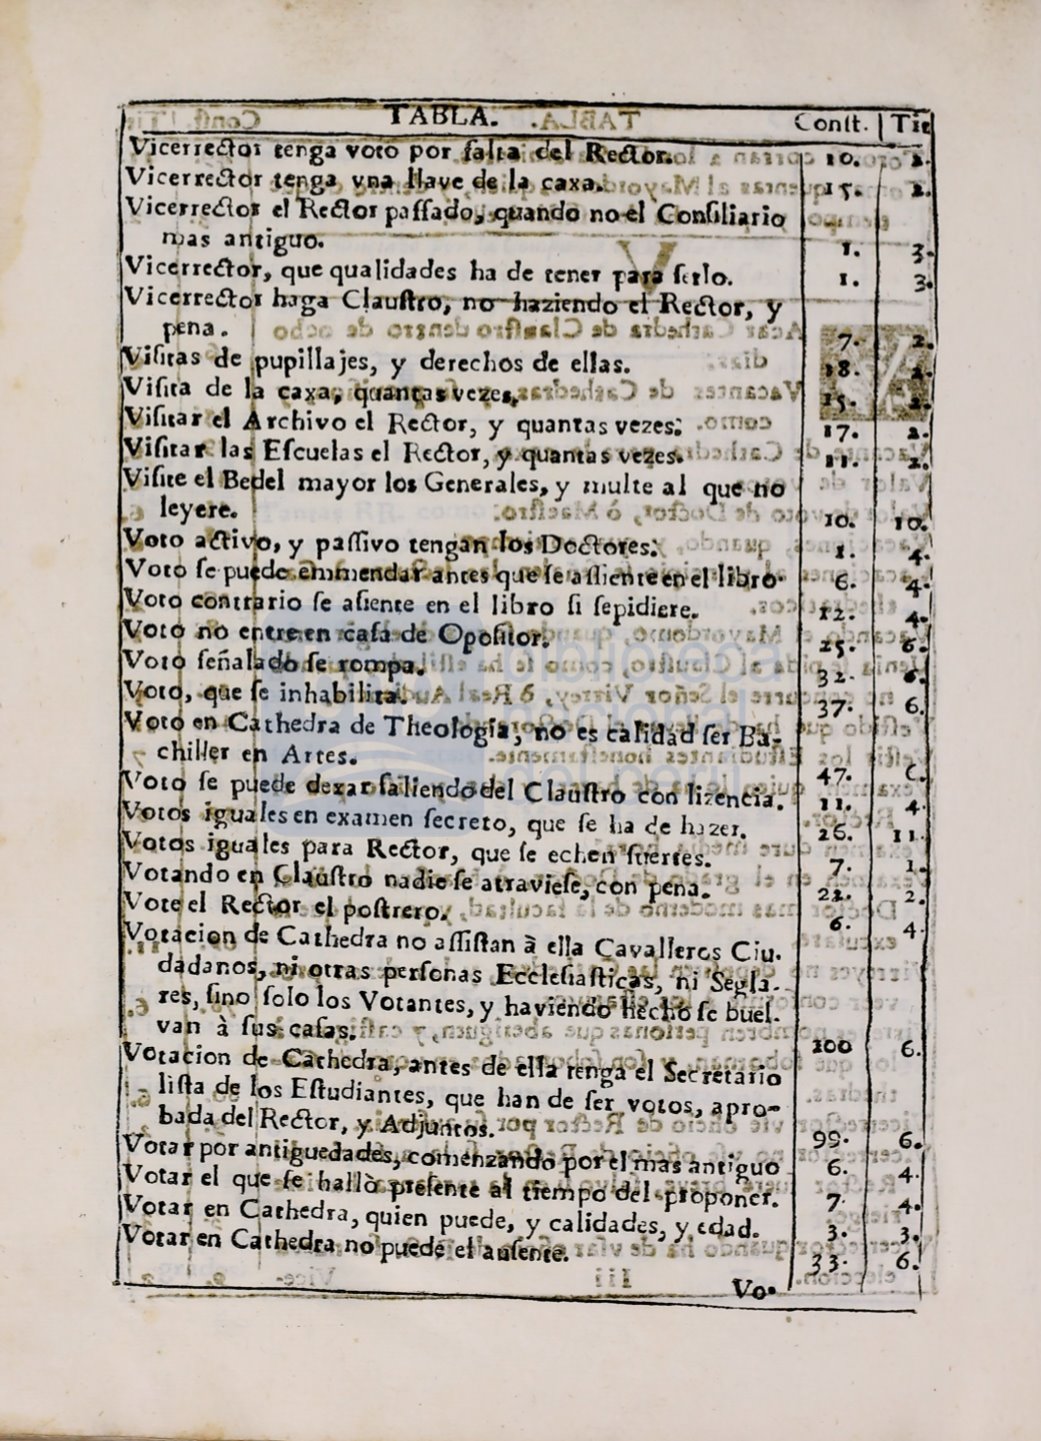 TABLA. Const. Tit
Vicerrector tenga voto por falta del Rector. 10. 2.
Vicerrector tenga vna llave de la caxa. 15. 2.
Vicerrector el Rector passado, quando no el Consiliario
mas antiguo. 1. 3.
Vicerrector, que qualidades ha de tener para serlo. 1. 3.
Vicerrector haga Claustro, no haziendo el Rector, y
pena. 7. 2.
Visitas de pupillajes, y derechos de ellas. 18. 2.
Visita de la caxa, quantas vezes, 15. 2.
Visitar el Archivo el Rector, y quantas vezes: 17. 2.
Visitar las Escuelas el Rector, y quantas vezes. 11. 2.
Visite el Bedel mayor los Generales, y multe al que no
leyere. 10. 10.
Voto activo, y passivo tengan los Doctores: 1. 4.
Voto se puede emmendar antes que se assiente en el libro. 6. 4.
Voto contrario se asiente en el libro si sepidiere. 12. 4.
Voto no entre en casa de Opositor. 25. 6.
Voto señalado se rompa. 32. 6.
Voto, que se inhabilita. 37. 6.
Voto en Cathedra de Theologia, no es calidad ser Ba-
chiller en Artes. 47. 6.
Voto se puede dexar saliendo del Claustro con lizencia. 11. 4.
Votos iguales en examen secreto, que se ha de hazer. 26. 11.
Votos iguales para Rector, que se echen suertes. 7. 1.
Votando en Claustro nadie se atraviese, con pena. 22. 2.
Vote el Rector el postrero. 6. 4.
Votacion de Cathedra no assistan à ella Cavalleros Ciu-
dadanos, ni otras personas Ecclesiasticas, ni Segla-
res, sino solo los Votantes, y haviendo hecho se buel-
van à sus casas. 100 6.
Votacion de Cathedra, antes de ella tenga el Secretario
lista de los Estudiantes, que han de ser votos, apro-
bada del Rector, y Adjuntos. 99. 6.
Votar por antiguedades, comenzando por el mas antiguo 6. 4.
Votar el que se hallò presente al tiempo del proponer. 7. 4.
Votar en Cathedra, quien puede, y calidades, y edad. 3. 3.
Votar en Cathedra no puede el ausente. 33. 6.
Vo-